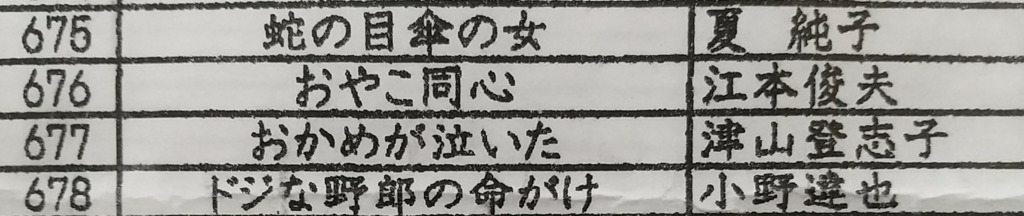 675 蛇の目傘の女 夏 純子
676 おやこ同心 江本俊夫
677 おかめが泣いた 津山登志子
678 ドジな野郎の命がけ 小野達也